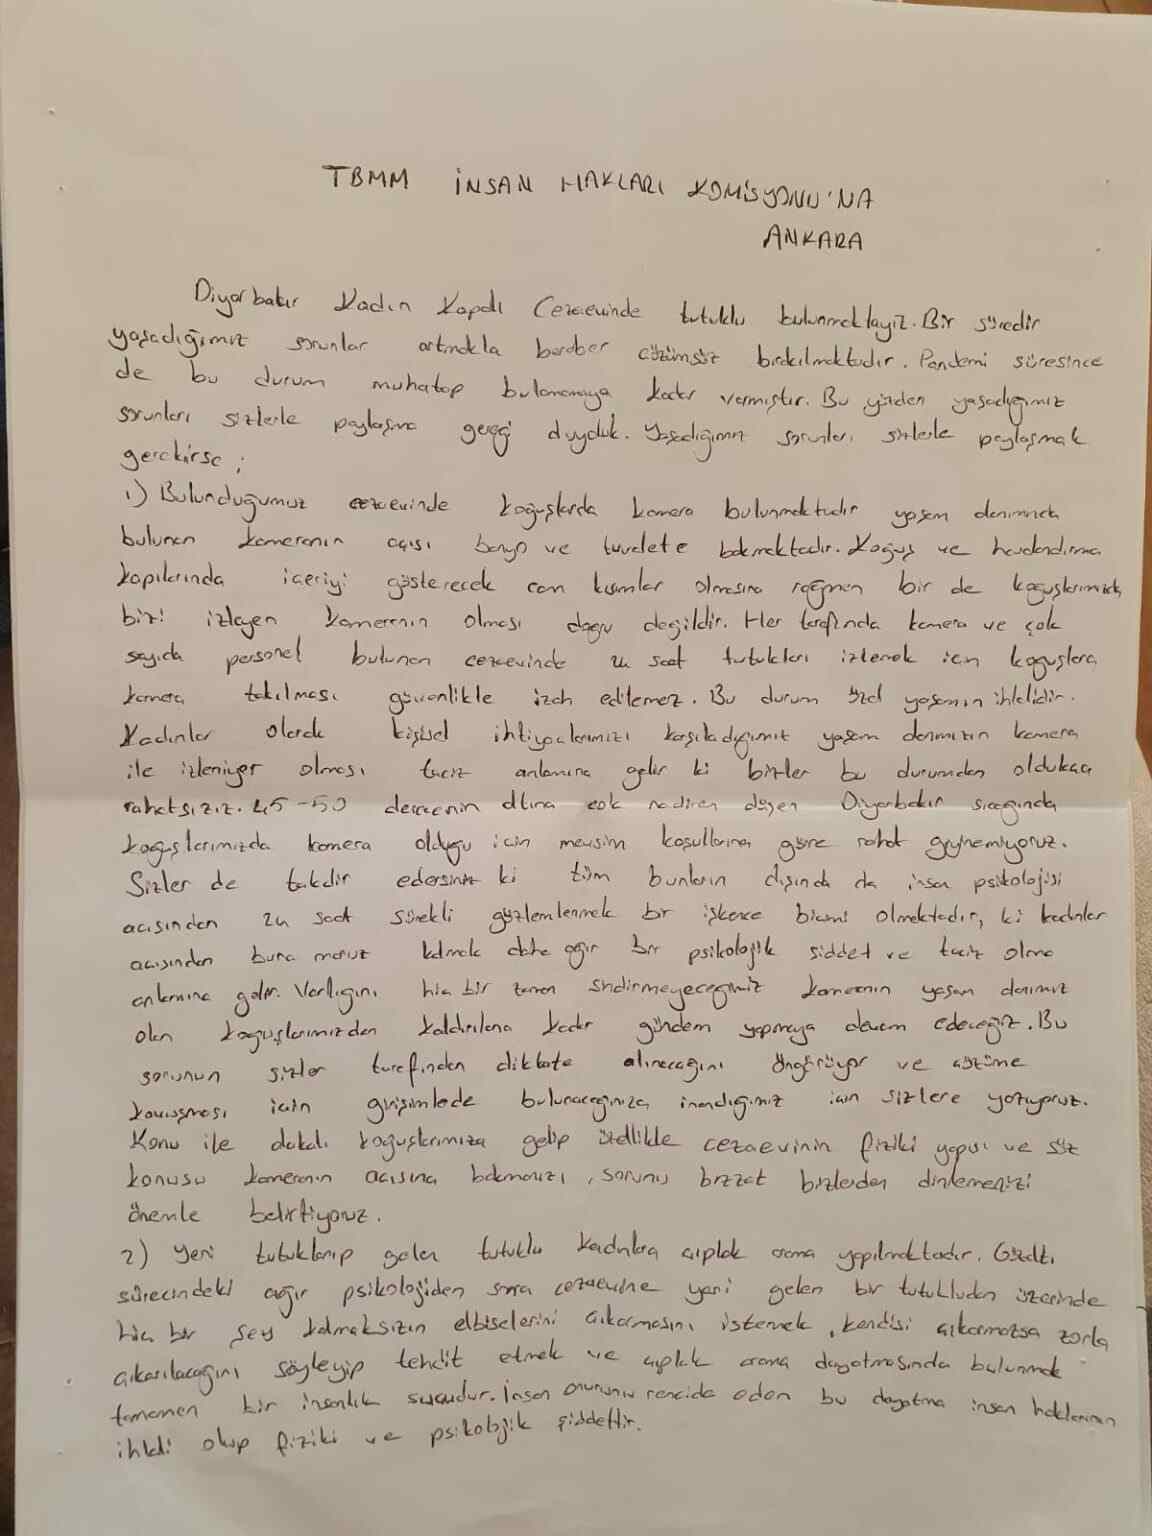 TBMM İNSAN HAKLARI KOMİSYONU'NA
ANKARA
Diyarbakır Kadın Kapalı Cezaevinde tutuklu bulunmaktayız. Bir süredir
yaşadığımız sorunlar artmakla beraber çözümsüz bırakılmaktadır. Pandemi süresince
de bu durum muhatap bulamamaya kadar varmıştır. Bu yüzden yaşadığımız
sorunları sizlerle paylaşma gereği duyduk. Yaşadığımız sorunları sizlerle paylaşmak
gerekirse;
1) Bulunduğumuz cezaevinde koğuşlarda kamera bulunmaktadır yaşam alanımızda
bulunan kameranın açısı banyo ve tuvalete bakmaktadır. Koğuş ve havalandırma
kapılarında içeriyi gösterecek cam kısımlar olmasına rağmen bir de koğuşlarımızda
bizi izleyen kameranın olması doğru değildir. Her tarafında kamera ve çok
sayıda personel bulunan cezaevinde 24 saat tutukluları izlemek için koğuşlara
kamera takılması güvenlikle izah edilemez. Bu durum özel yaşamın ihlalidir.
Kadınlar olarak kişisel ihtiyaçlarımızı karşıladığımız yaşam alanımızın kamera
ile izleniyor olması taciz anlamına gelir ki bizler bu durumdan oldukça
rahatsızız. 45-50 derecenin altına çok nadiren düşen Diyarbakır sıcağında
koğuşlarımızda kamera olduğu için mevsim koşullarına göre rahat giyinemiyoruz.
Sizler de takdir edersiniz ki tüm bunların dışında da insan psikolojisi
açısından 24 saat sürekli gözlemlenmek bir işkence biçimi olmaktadır, ki kadınlar
açısından buna maruz kalmak daha ağır bir psikolojik şiddet ve taciz olma
anlamına gelir. Varlığını hiç bir zaman sindirmeyeceğimiz kameranın yaşam alanımız
olan koğuşlarımızdan kaldırılana kadar gündem yapmaya devam edeceğiz. Bu
sorunun sizler tarafından dikkate alınacağını öngörüyor ve çözüme
kavuşması için girişimlerde bulunacağınıza inandığımız için sizlere yazıyoruz.
Konu ile alakalı koğuşlarımıza gelip özellikle cezaevinin fiziki yapısı ve söz
konusu kameranın açısına bakmanızı, sorunu bizzat bizlerden dinlemenizi
önemle belirtiyoruz.
2) Yeni tutuklanıp gelen tutuklu kadınlara çıplak arama yapılmaktadır. Gözaltı
sürecindeki ağır psikolojiden sonra cezaevine yeni gelen bir tutukludan üzerinde
hiç bir şey kalmaksızın elbiselerini çıkarmasını istemek, kendisi çıkarmazsa zorla
çıkarılacağını söyleyip tehdit etmek ve çıplak arama dayatmasında bulunmak
tamamen bir insanlık suçudur. İnsan onurunu rencide eden bu dayatma insan haklarının
ihlali olup fiziki ve psikolojik şiddettir.